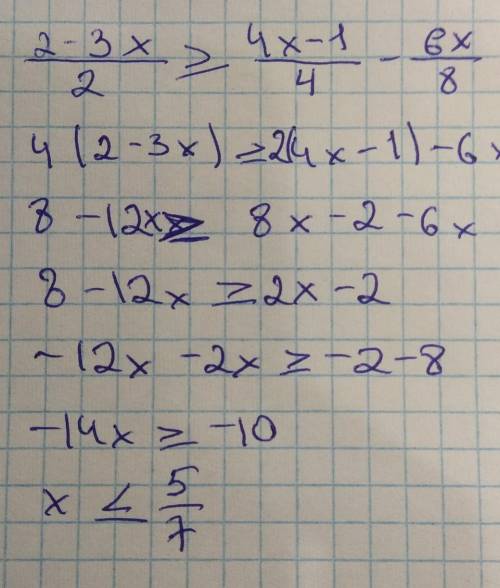 (2-3x)/2 ≥ (4x-1)/4 - 6x/8
4(2-3x) ≥ 2(4x-1)-6x
8-12x ≥ 8x-2-6x
8-12x ≥ 2x-2
-12x-2x ≥ -2-8
-14x ≥ -10
x ≤ 5/7